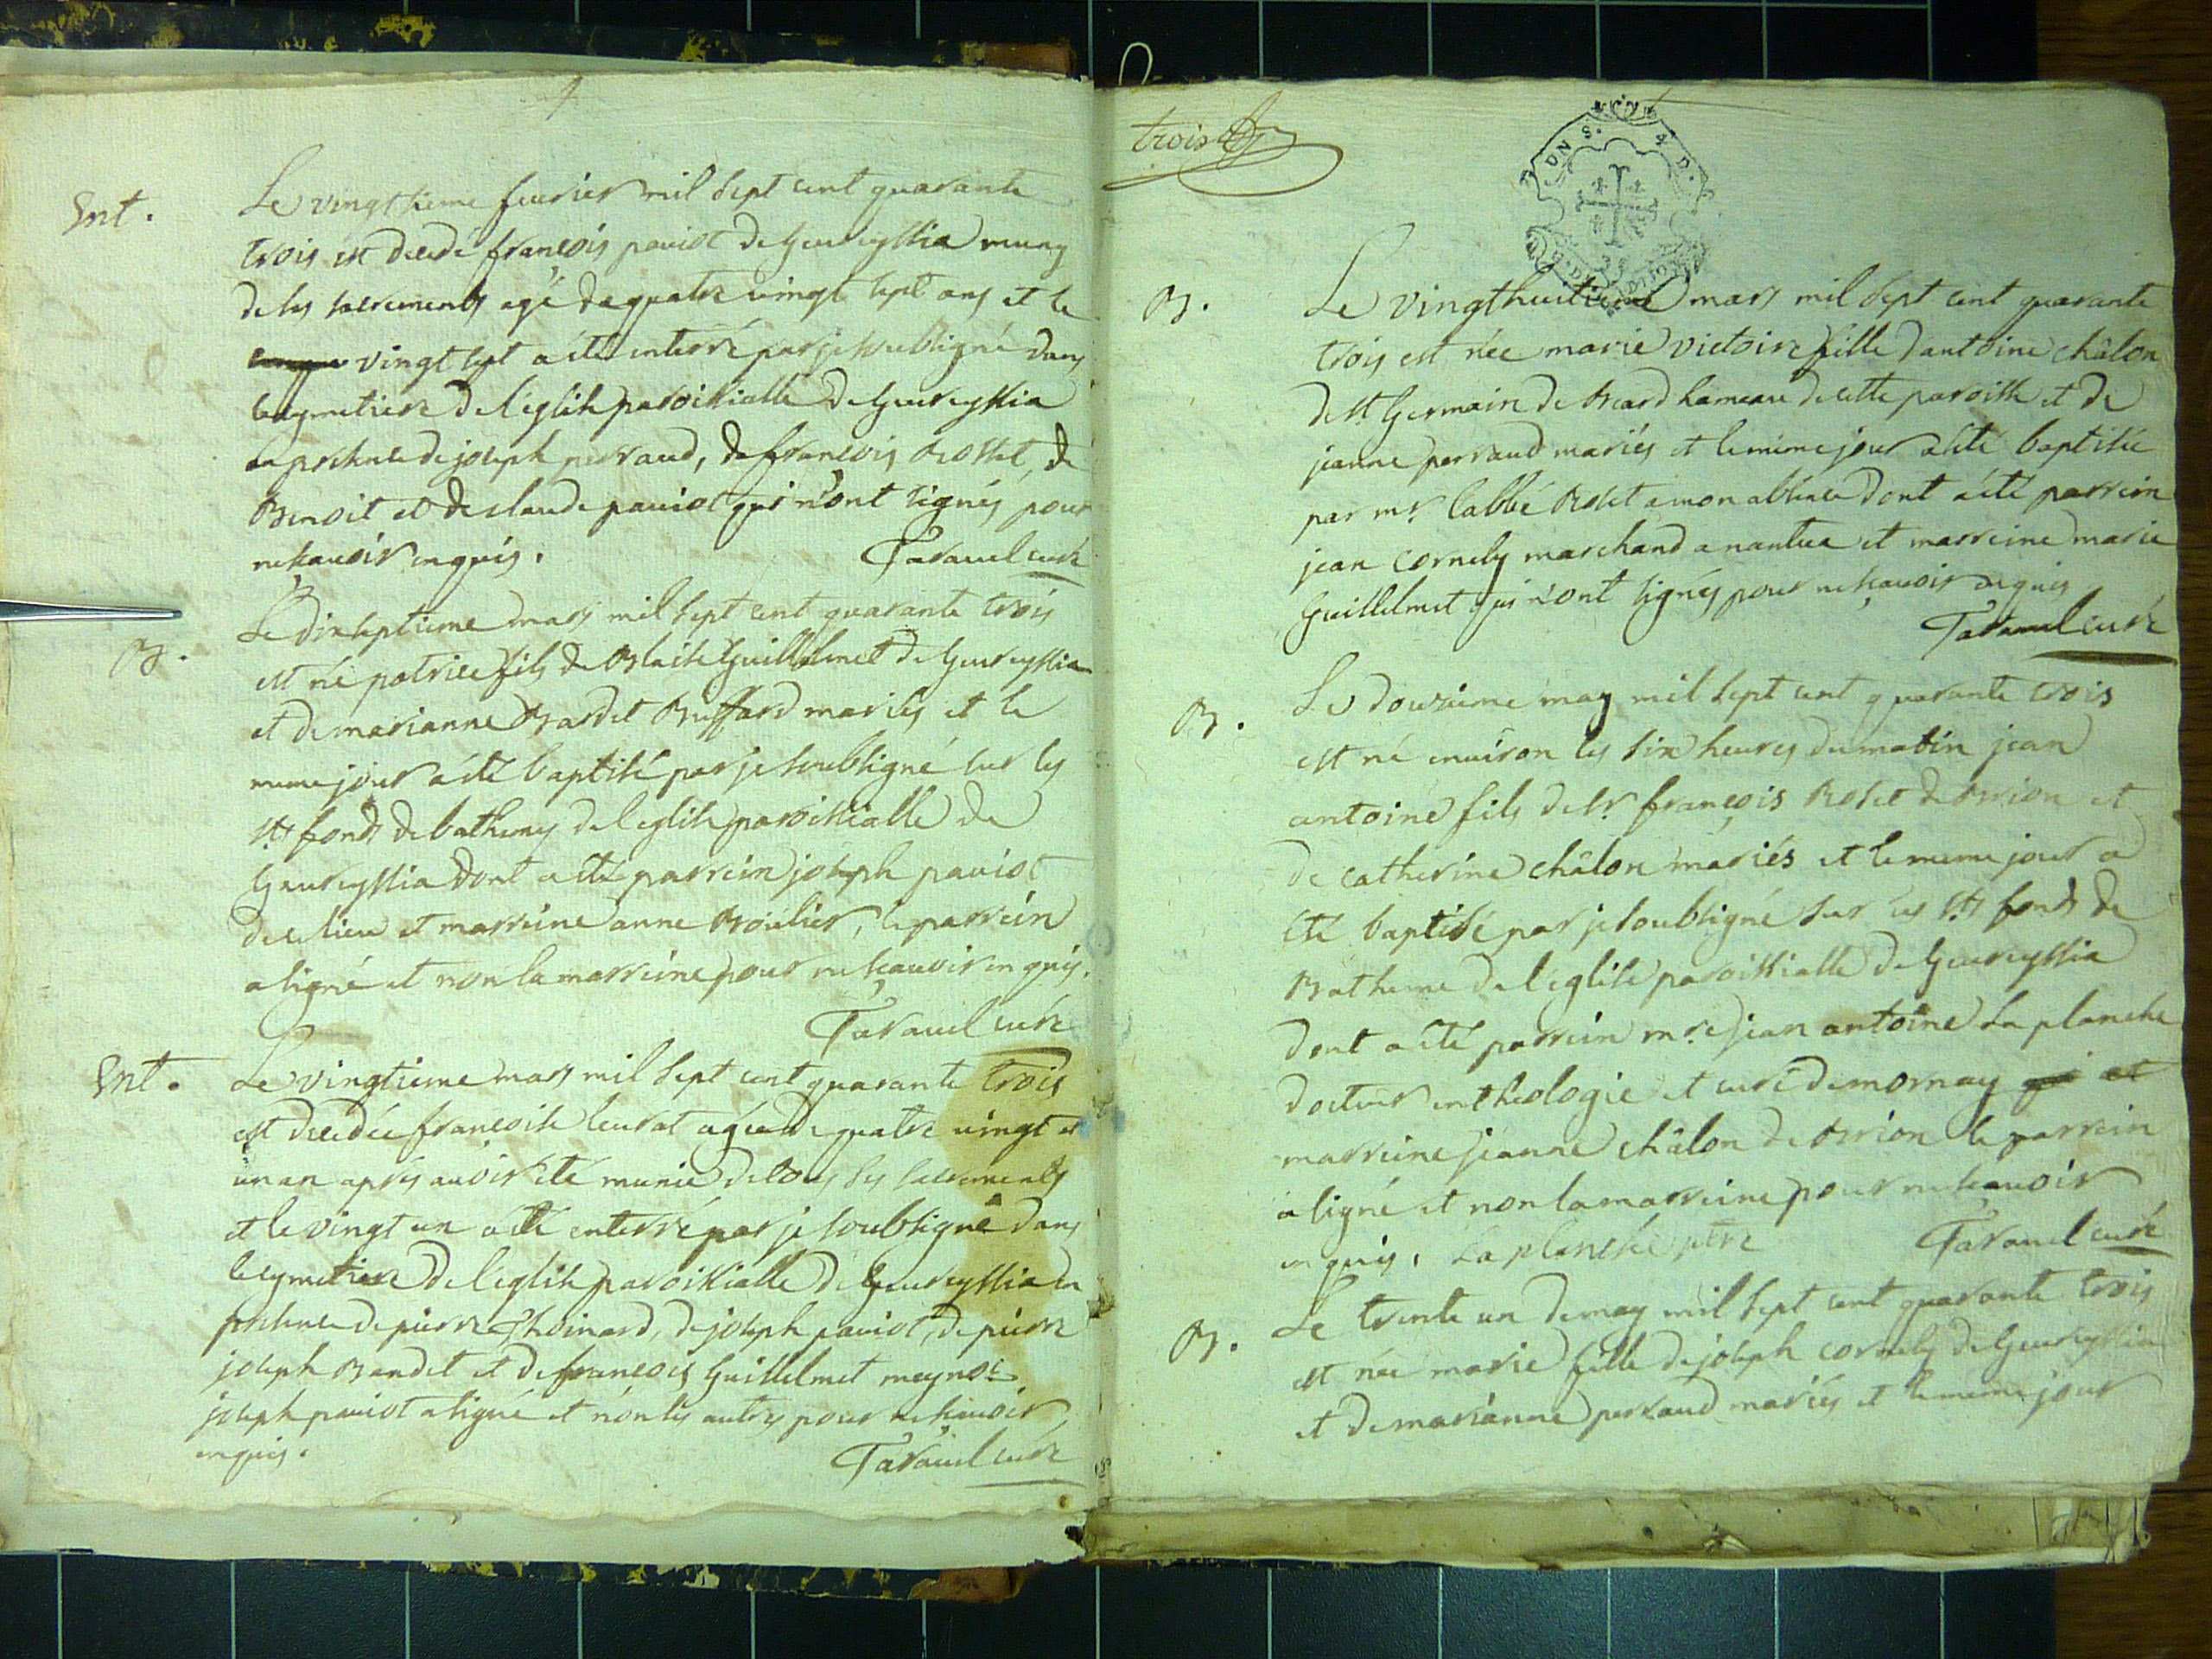 Ent.
Le vingtieme feurier mil sept cent quarante
trois est decedé françois pauiot de Geureyssia muny
de ses sacrements agé de quatre vingt sept ans et le
vingt sept a été enterré par je soubsigné dans
le cymetiere de l'eglise paroissialle de Geureyssia
en presence de joseph perraud, de françois Rosset, de
Benoit et de claude pauiot qui n'ont signés pour
ne sçauoir enquis. Tarauel curé
B.
Le dixseptieme mars mil sept cent quarante trois
est né patrice fils de Blaise Guillelmet de Geureyssia
et de marianne Bardet Buffard mariés et le
meme jour a été baptisé par je soubsigné sur les
sts fonds de bathemes de l'eglise paroissialle de
Geureyssia dont a été parrein joseph pauiot
de ce lieu et marreine anne Broulier, le parrein
a signé et non la marreine pour ne sçauoir enquis.
Tarauel curé
Ent.
Le vingtieme mars mil sept cent quarante trois
est decedée françoise leurat agée de quatre vingt et
un an après auoir été munie de tous ses sacrements
et le vingt un a été enterré par je soubsigné dans
le cymetiere de l'eglise paroissialle de Geureyssia en
presence de pierre Thoinard, de joseph pauiot, de pierre
joseph Bandet et de françois Guillelmet meynot
joseph pauiot a signé et non les autres pour ne sçauoir
enquis. Tarauel curé
trois
B.
Le vingthuitieme mars mil sept cent quarante
trois est née marie victoire fille d'antoine châlon
de st Germain de Beard hameau de cette paroisse et de
jeanne perraud mariés et le même jour a été baptisée
par mr. l'abbé Roset a mon absence dont a été parrein
jean cornely marchand a nantua et marreine marie
Guillelmet qui n'ont signés pour ne sçauoir enquis
Tarauel curé
B.
Le douzieme may mil sept cent quarante trois
est né enuiron les six heures du matin jean
antoine fils de sr. françois Roset de Brion et
de catherine châlon mariés et le meme jour a
été baptisé par je soubsigné sur les sts fonds de
Batheme de l'eglise paroissialle de Geureyssia
dont a été parrein mre jean antoine La planche
docteur en theologie et curé de mornay qui et
marreine jeanne châlon de Brion le parrein
a signé et non la marreine pour ne sçauoir
enquis. La planche ptre Tarauel curé
B.
Le trente un de may mil sept cent quarante trois
est née marie fille de joseph cornely de Geureyssia
et de marianne perraud mariés et le meme jour